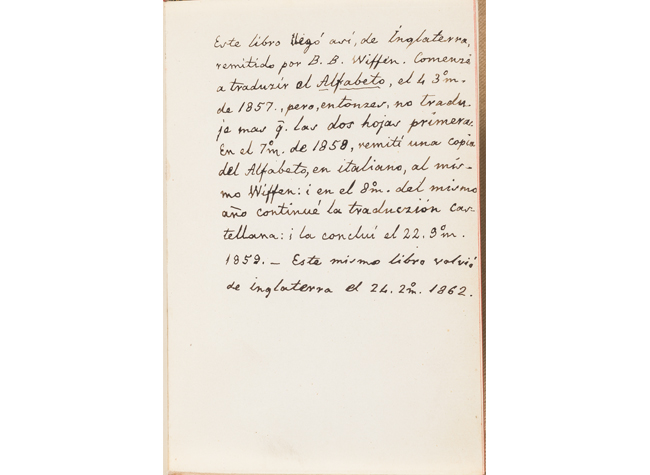 Este libro llegó así, de Inglaterra,
remitido por B. B. Wiffen. Comenzé
a traduzir el Alfabeto, el 4 3º m.
de 1857., pero, entonzes, no tradu-
je mas q̃. las dos hojas primeras.
En el 7º m. de 1858, remití una copia
del Alfabeto, en italiano, al mis-
mo Wiffen: i en el 8º m. del mismo
año continué la traduczión cas-
tellana: i la concluí el 22. 9º m.
1859. — Este mismo libro volvió
de inglaterra el 24. 2º m. 1862.